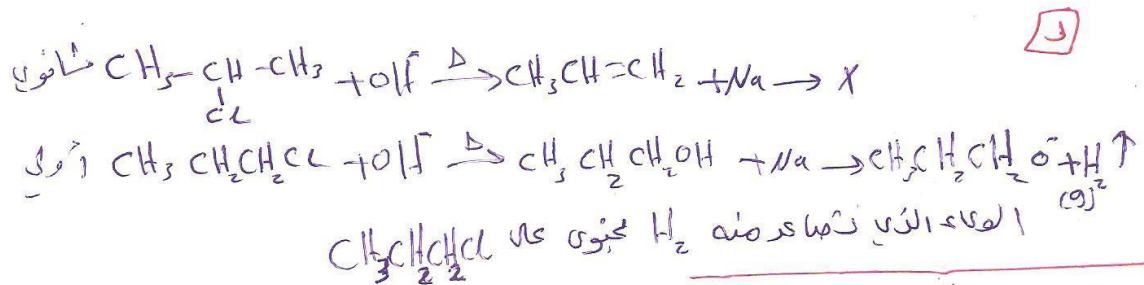 د
ثانوي CH₃-CH-CH₃ + OH⁻ →Δ CH₃CH=CH₂ + Na → X
Cl
أولي CH₃CH₂CH₂Cl + OH⁻ →Δ CH₃CH₂CH₂OH + Na → CH₃CH₂CH₂O⁻ + H₂↑
(g)
الوعاء الذي تصاعد منه H₂ يحتوي على CH₃CH₂CH₂Cl